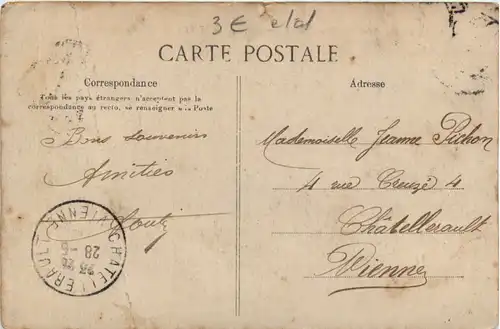 3€
CARTE POSTALE
Correspondance
Tous les pays étrangers n'acceptent pas la
correspondance au recto, se renseigner à la Poste
Bons souvenirs
Amitiés
Adresse
Mademoiselle Jeanne Pichon
4 rue Creuzé 4
Châtellerault
Vienne
CHATELLERAULT
VIENNE
28 -6